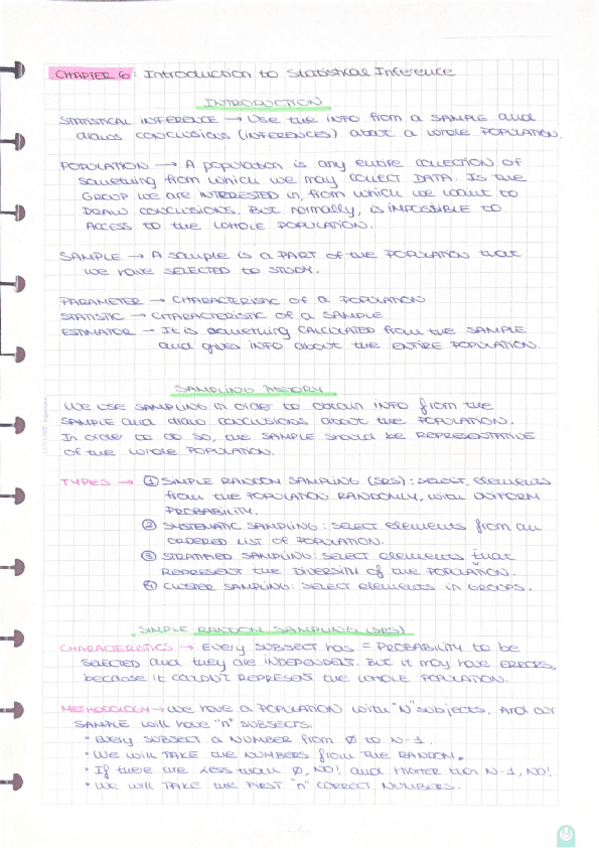 CHAPTER 6: Introduction to Statistical Inference
INTRODUCTION
STATISTICAL INFERENCE → Use the INFO from a SAMPLE and
draws CONCLUSIONS (INFERENCES) about a whole POPULATION.
POPULATION → A population is any entire COLLECTION of
something from which we may COLLECT DATA. Is the
GROUP we are INTERESTED in, from which we want to
DRAW CONCLUSIONS. But normally, is IMPOSSIBLE to
ACCESS to the WHOLE POPULATION.
SAMPLE → A sample is a PART of the POPULATION that
we have SELECTED to STUDY.
PARAMETER → CHARACTERISTIC of a POPULATION
STATISTIC → CHARACTERISTIC of a SAMPLE
ESTIMATOR → It is something CALCULATED from the SAMPLE
and gives INFO about the ENTIRE POPULATION.
SAMPLING THEORY
We use SAMPLING in order to obtain INFO from the
SAMPLE and draw conclusions about the POPULATION.
In order to do so, the SAMPLE should be REPRESENTATIVE
of the whole POPULATION.
TYPES → ① SIMPLE RANDOM SAMPLING (SRS): SELECT elements
from the POPULATION RANDOMLY, with UNIFORM
PROBABILITY.
② SYSTEMATIC SAMPLING: SELECT elements from an
ORDERED LIST of POPULATION.
③ STRATIFIED SAMPLING: SELECT elements that
REPRESENT the DIVERSITY of the POPULATION.
④ CLUSTER SAMPLING: SELECT elements in GROUPS.
SIMPLE RANDOM SAMPLING (SRS)
CHARACTERISTICS → Every SUBJECT has = PROBABILITY to be
SELECTED and they are INDEPENDENT. But it may have ERRORS,
because it CANNOT REPRESENT the WHOLE POPULATION.
METHODOLOGY → We have a POPULATION with "N" subjects. And our
SAMPLE will have "n" SUBJECTS.
• Every SUBJECT a NUMBER from Ø to N-1.
• We will TAKE the NUMBERS from the RANDOM.
• If there are LESS than Ø, NO! and HIGHER than N-1, NO!
• We will TAKE the FIRST "n" CORRECT NUMBERS.